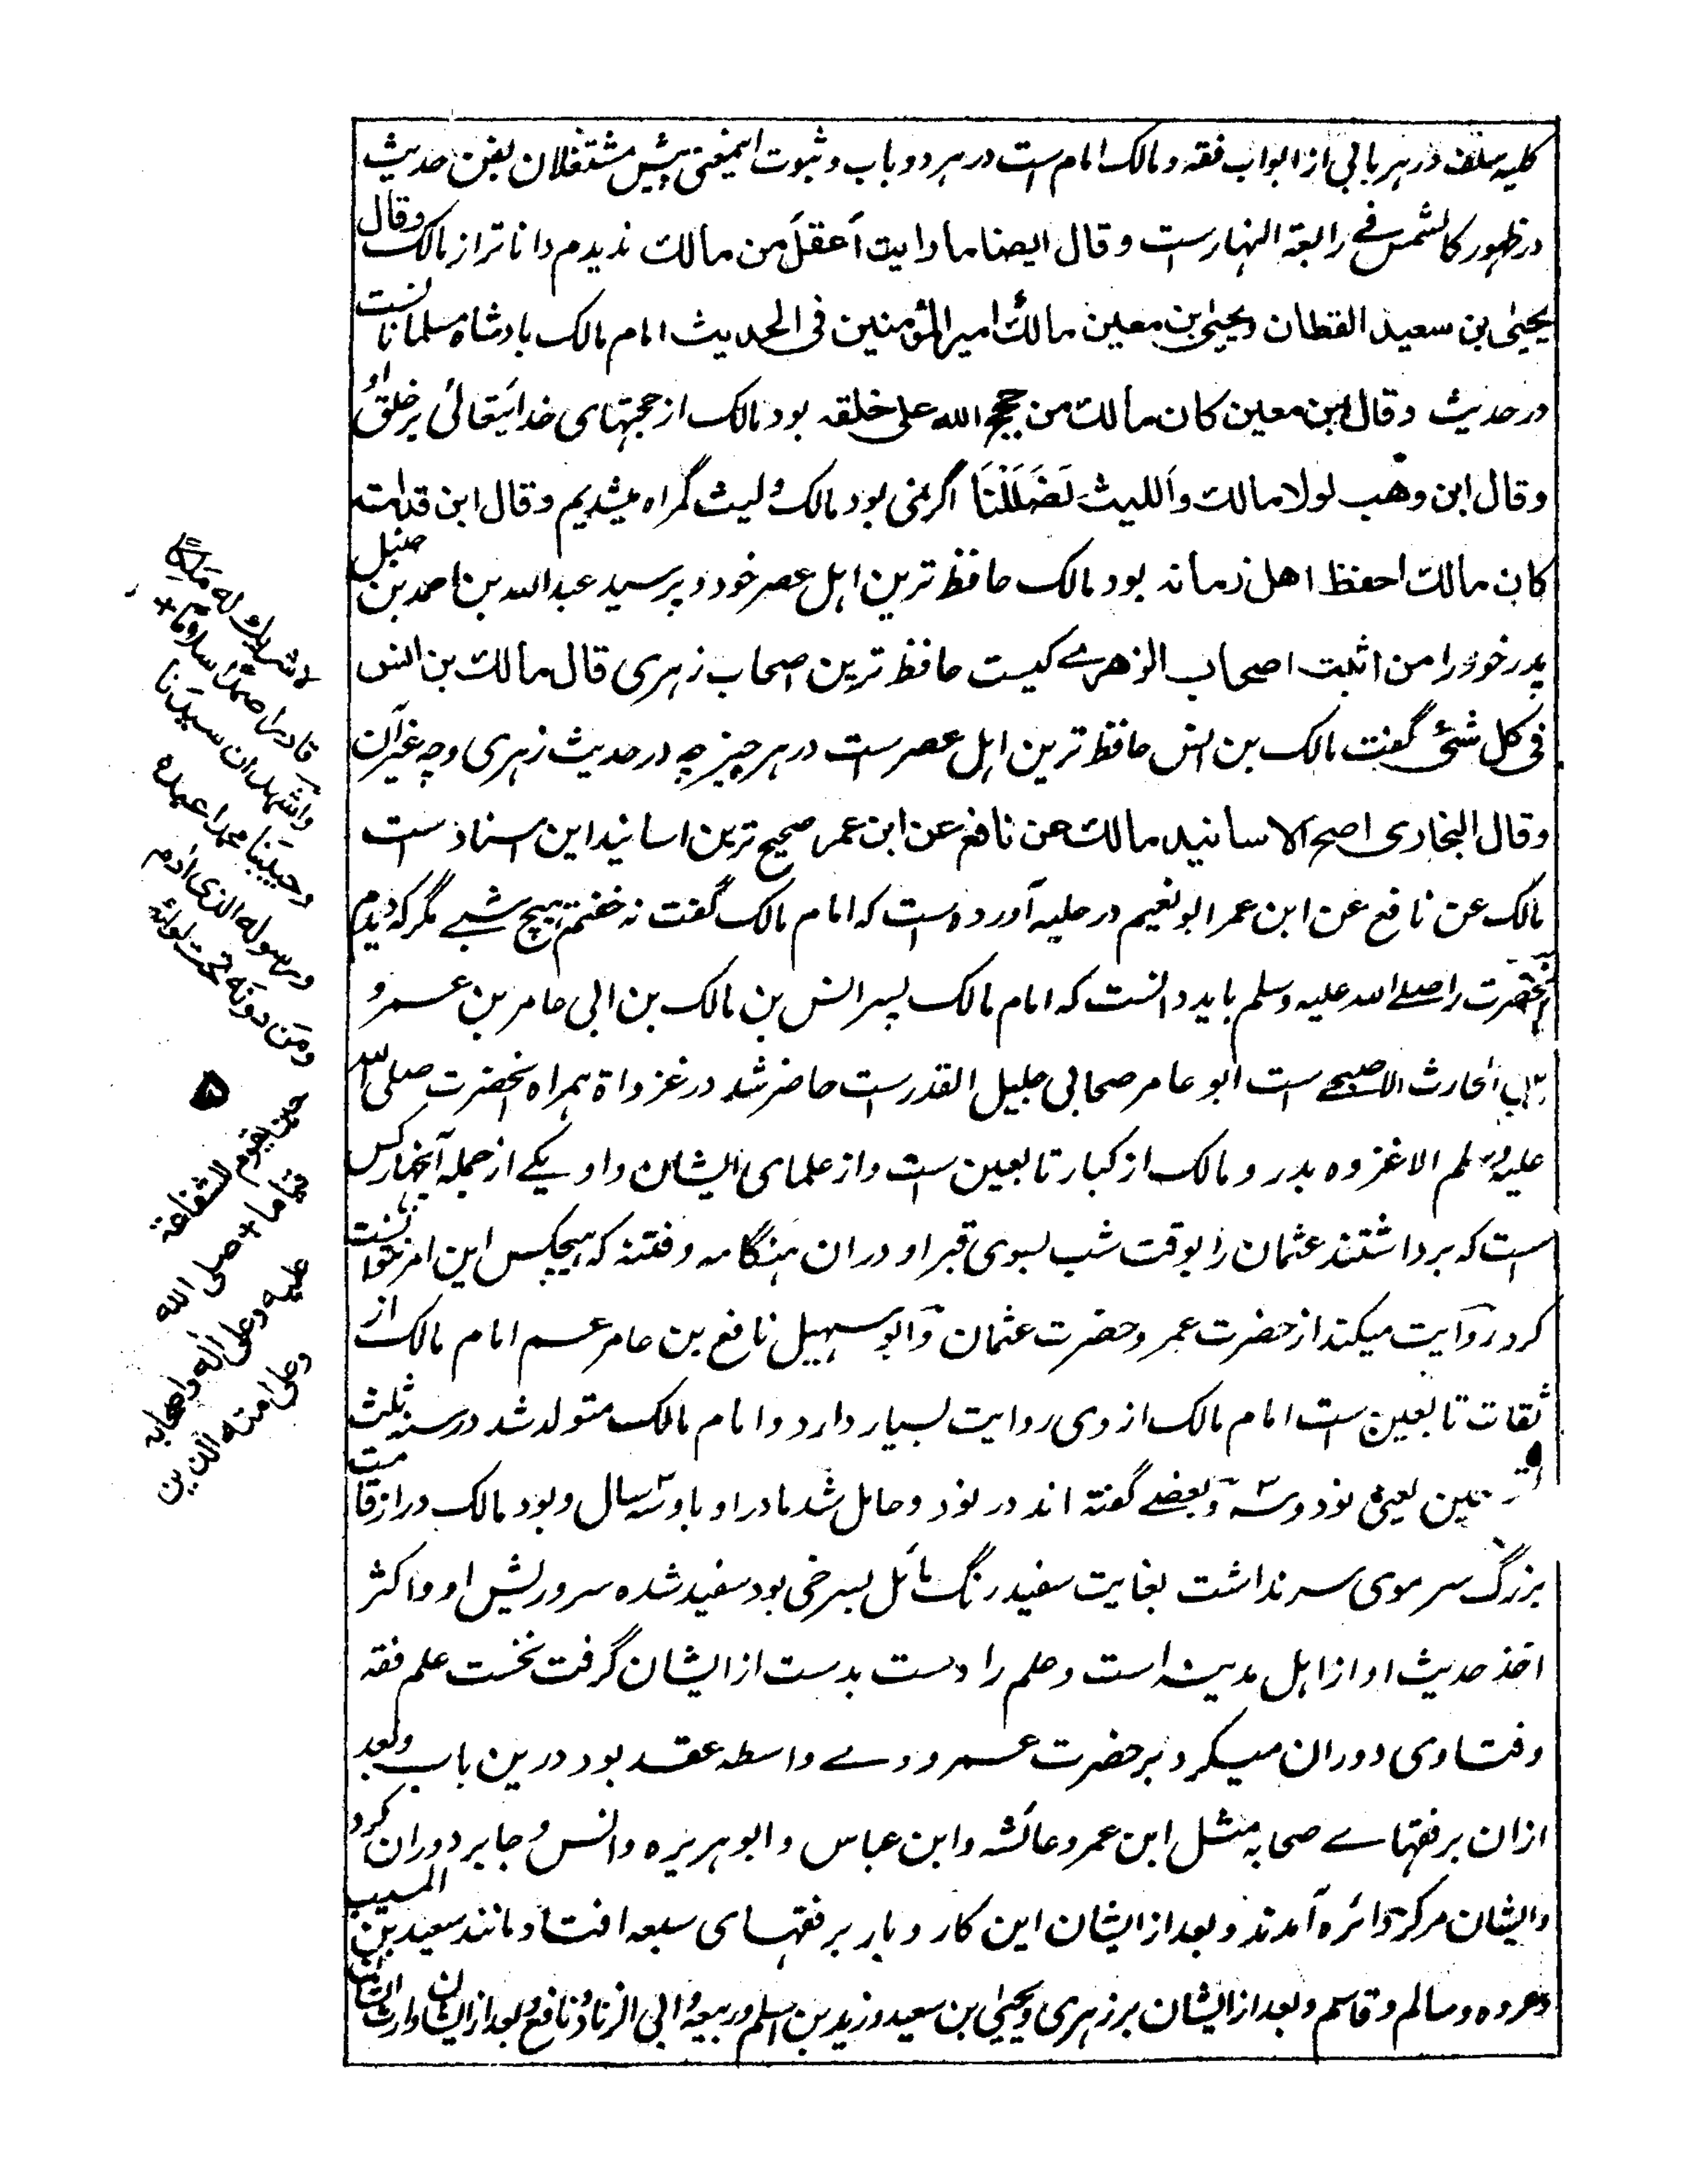 کلیه سلف در هر بابی از ابواب فقه و مالک امام ست در هر دو باب و ثبوت اینمعنی پیش مشتغلان بفن حدیث
در ظهور کالشمس فی رابعة النهارست و قال ایضا ما رایت أعقل من مالک ندیدم داناتر از مالک وقال
یحیی بن سعید القطان ویحیی بن معین مالک امیر المؤمنین فی الحدیث امام مالک بادشاه مسلمانانست
در حدیث وقال ابن معین کان مالک من حجج الله علی خلقه بود مالک از حجتهای خدایتعالی بر خلق او
وقال ابن وهب لولا مالک واللیث لَضَلَلْنَا اگر نمی بود مالک و لیث گمراه میشدیم وقال ابن قدامه
کان مالک احفظ اهل زمانه بود مالک حافظ ترین اهل عصر خود و پرسید عبد الله بن احمد بن حنبل
پدر خود را من اثبت اصحاب الزهری کیست حافظ ترین اصحاب زهری قال مالک بن انس
فی کل شئ گفت مالک بن انس حافظ ترین اهل عصرست در هر چیز چه در حدیث زهری و چه غیر آن
وقال البخاری اصح الاسانید مالک عن نافع عن ابن عمر صحیح ترین اسانید این اسنادست
مالک عن نافع عن ابن عمر ابو نعیم در حلیه آورده است که امام مالک گفت نه خفتم هیچ شبے مگر که دیدم
آنحضرت را صلے الله علیه وسلم باید دانست که امام مالک پسر انس بن مالک بن ابی عامر بن عمرو
بن الحارث الاصبحے ست ابو عامر صحابی جلیل القدرست حاضر شد در غزواة همراه آنحضرت صلی الله
علیه وسلم الا غزوه بدر و مالک از کبار تابعین ست و از علمای ایشان و او یکے از جمله آنچهار کس
ست که برداشتند عثمان را بوقت شب بسوی قبر او دران هنگامه و فتنه که هیچکس این امر نتوانست
کرد روایت میکند از حضرت عمر و حضرت عثمان و ابو سهیل نافع بن عامر عم امام مالک از
ثقات تابعین ست امام مالک از وی روایت بسیار دارد و امام مالک متولد شد در سنه ثلث
و تسعین یعنی نود و سه و بعضے گفته اند در نود و حامل شد مادر او باو سه سال و بود مالک دراز قامت
بزرگ سر موی سر نداشت بغایت سفید رنگ مائل بسرخی بود سفید شده سر و ریش او و اکثر
اخذ حدیث او از اهل مدینه است و علم را دست بدست از ایشان گرفت نخست علم فقه
و فتاوی دوران میکرد بر حضرت عمر و وے واسطه عقد بود درین باب و بعد
ازان بر فقهاے صحابه مثل ابن عمر و عائشه و ابن عباس و ابو هریره و انس و جابر دوران کرد
و ایشان مرکز دائره آمدند و بعد از ایشان این کار و بار بر فقهای سبعه افتاد مانند سعید بن المسیب
و عروه و سالم و قاسم و بعد از ایشان بر زهری و یحیی بن سعید و زید بن اسلم و ربیعه و ابی الزناد و نافع و بعد از ایشان وارث
لا شریك له مَلِكًا
قادرا صمدًا سلامًا +
واشهد ان سیدنا
وحبیبنا محمدا عبده
ورسوله الذی آدم
ومن دونه تحت لوائه
۵
حین یقوم للشفاعة
قیاما + صلی الله
علیه وعلی آله واصحابه
وعلی امته الذین